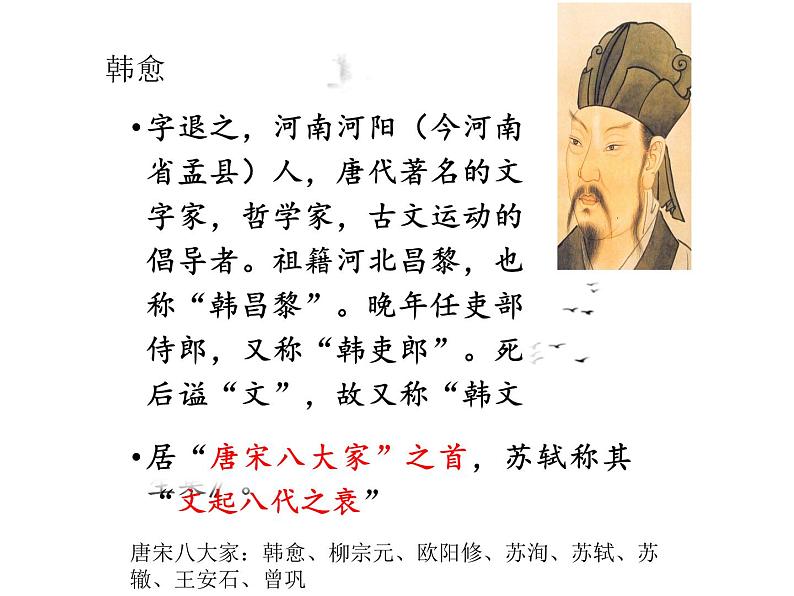 韩愈
•字退之，河南河阳（今河南
省孟县）人，唐代著名的文
字家，哲学家，古文运动的
倡导者。祖籍河北昌黎，也
称“韩昌黎”。晚年任吏部
侍郎，又称“韩吏部”。死
后谥“文”，故又称“韩文
•居“唐宋八大家”之首，苏轼称其
“文起八代之衰”
唐宋八大家：韩愈、柳宗元、欧阳修、苏洵、苏轼、苏
辙、王安石、曾巩